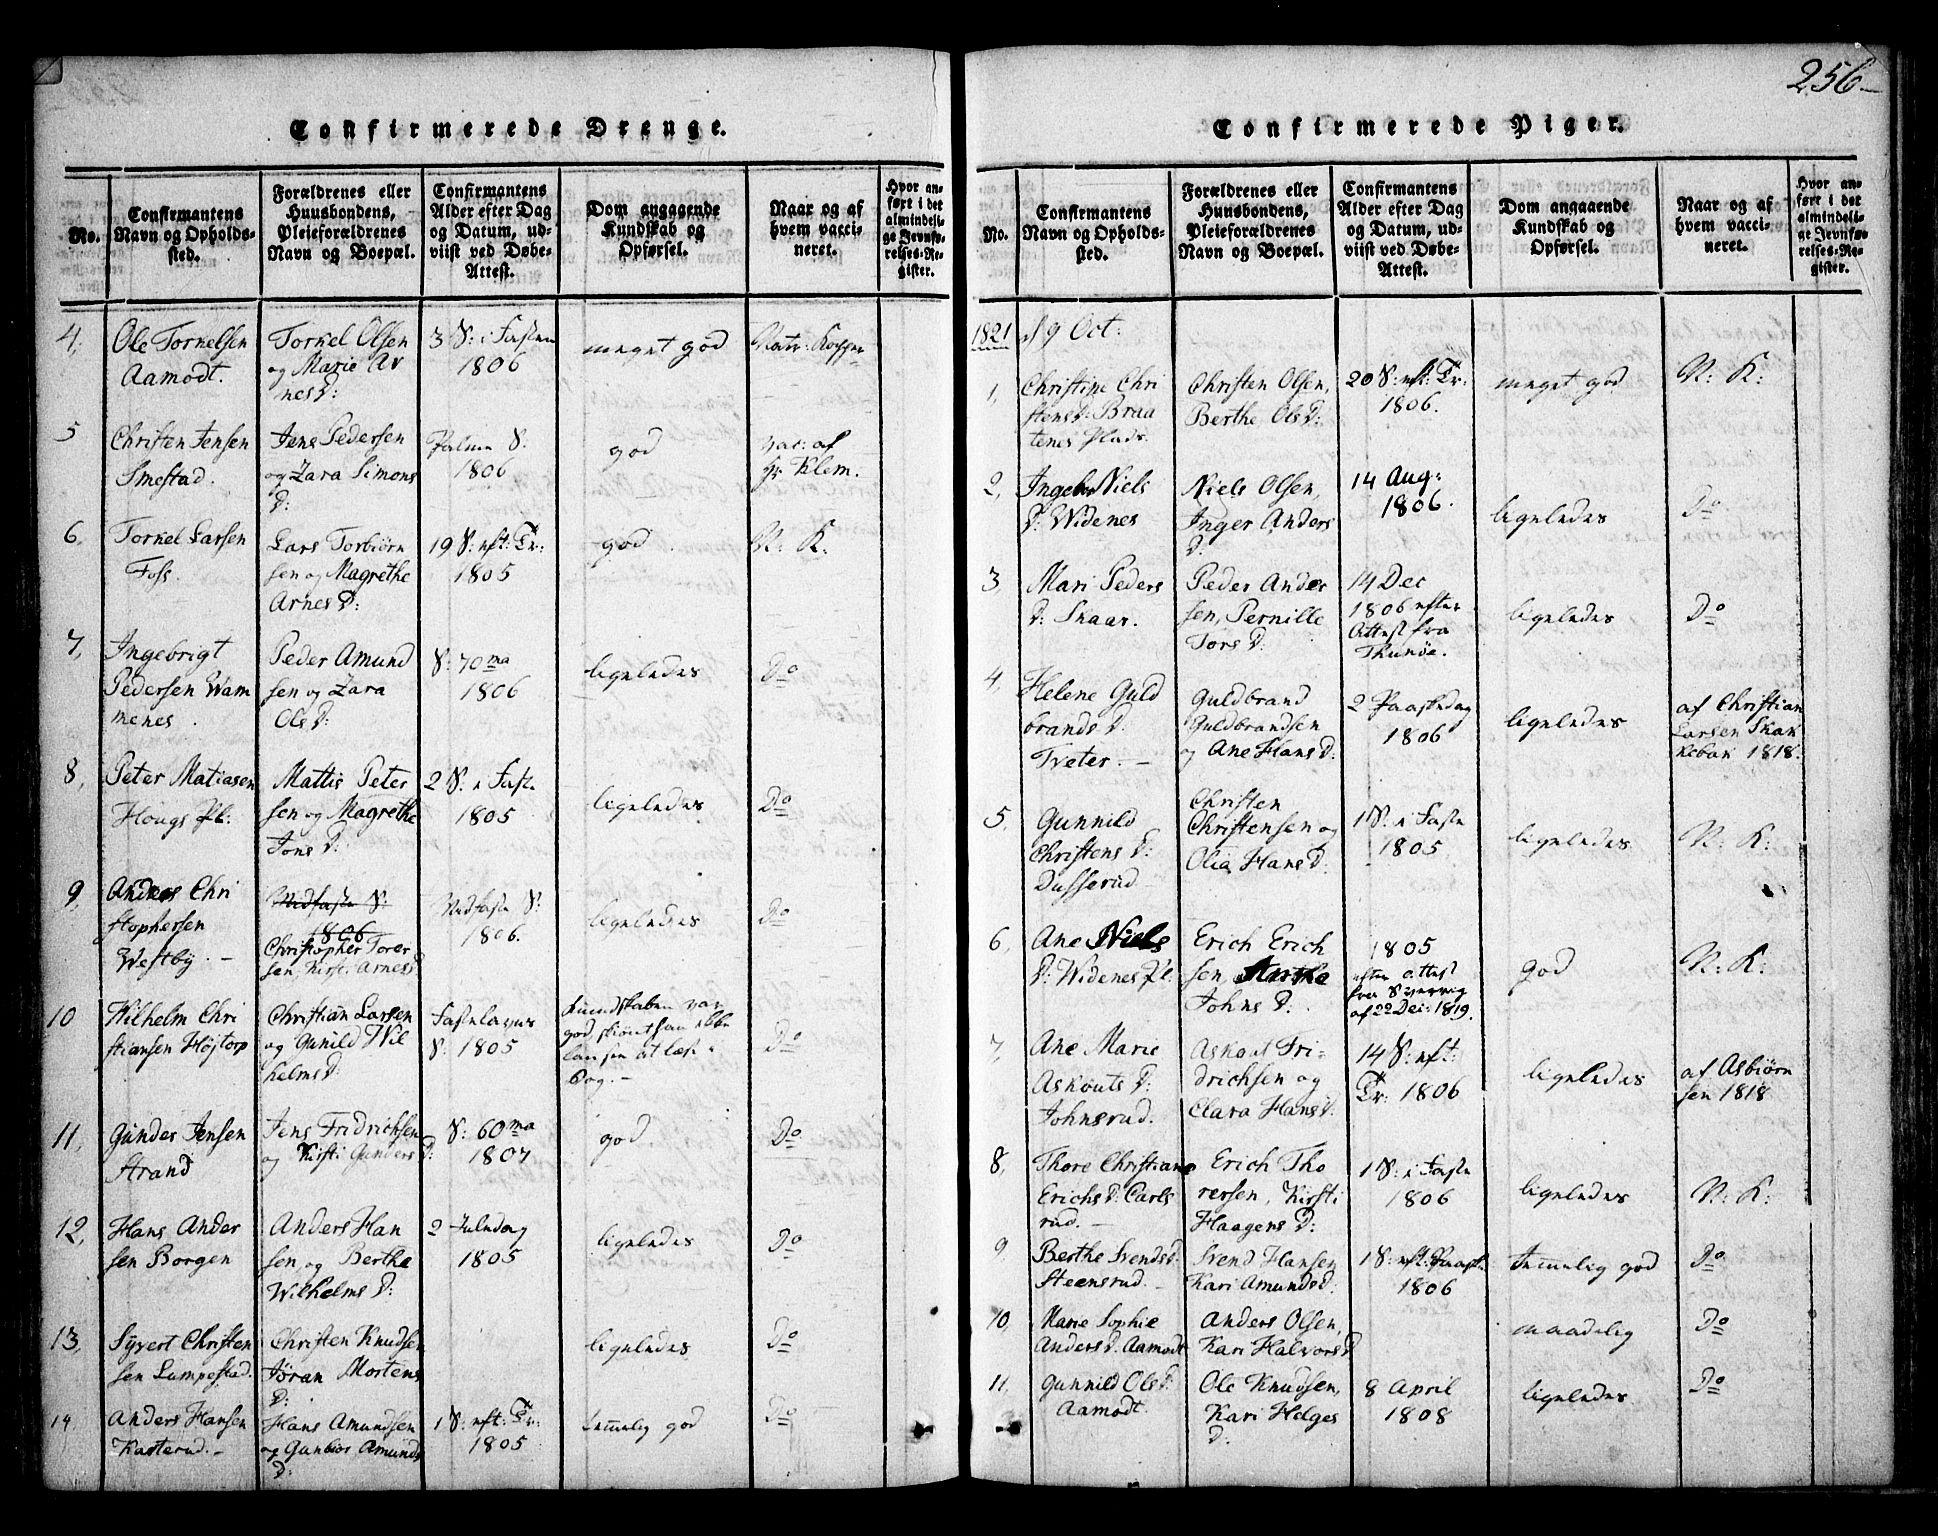 256
Confirmerede Drenge.
No.
Confirmantens
Navn og Opholds-
sted.
Forældrenes eller
Huusbondens,
Pleieforældrenes
Navn og Boepæl.
Confirmantens
Alder efter Dag
og Datum, ud-
viist ved Døbe-
Attest.
Dom angagende
Kundskab og
Opførsel.
Naar og af
hvem vacci-
neret.
Hvor an-
ført i det
almindeli-
ge Jevnfø-
relses-Re-
gister.
4,
Ole Tornelsen
Aamodt.
Tornel Olsen
og Marie Ar
nesD:
3 S: i Fasten
1806
meget god
Natr: Kopper
5
Christen Jensen
Smestad.
Jens Pedersen
og Zara Simons
D:
Palme S.
1806
god
vac: af
Hr Klem.
6,
Tornel Larsen
Foss.
Lars Torbiørn
sen og Magrethe
Arnes D:
19 S: eft: Tr:
1805
god
N: K:
7,
Ingebrigt
Pedersen Wam
menes.
Peder Amund
sen og Zara
Ols D:
S: 70ma
1806
ligeledes
Do
8,
Peter Matiasen
Hougs Pl:
Mattis Peter
sen og Magrethe
Jons D:
2 S: i Faste
1805
ligeledes
Do
9,
Anders Chri
stophersen
Westby. –
Midfaste S:
1806
Christopher Torer
sen, Kirst: ArnesD
Midfaste S:
1806.
ligeledes
Do
10
Wilhelm Chri
stiansen Højtorp
Christian Larsen
og Gunild Wil
helmsD:
Fastelavns
S: 1805
Kundskaben var
god skiønt han ikke
bog. –
Do
11,
Gunder Jensen
Strand
Jens Fridrichsen
og Kirsti Gunders D:
S: 60ma
1807
god
Do
12,
Hans Ander
sen Borgen
Anders Han
sen og Berthe
Wilhelms D:
2 Juledag
1805
ligeledes
Do
13,
Syvert Christen
sen Lumpestad.
Christen Knudsen
Jøran Mortens
D:
ligeledes
Do
14
Anders Hansen
Kasterud. –
Hans Amundsen
og Gunbior Amunds
D:
1 S: eft: Tr:
1805
temmelig god
Do
Confirmerede Piger.
No.
Confirmantens
Navn og Opholds-
sted.
Forældrenes eller
Huusbondens,
Pleieforældrenes
Navn og Boepæl.
Confirmantens
Alder efter Dag
og Datum, ud-
viist ved Døbe-
Attest.
Dom angaaende
Kundskab og
Opførsel.
Naar og af
hvem vacci-
neret.
Hvor an-
ført i det
almindeli-
ge Jevnfø-
relses-Re-
gister.
1821
d 9 Oct:
1,
Christine Chri
stensD: Braa
tenes Plads.
Christen Olsen,
Berthe OlsD:
20 S: eft: Tr:
1806.
meget god
N: K:
2,
Ingebr Niels
D: Widenes
Niels Olsen,
Inger Anders
D:
14 Aug:
1806.
ligeledes
Do
3,
Mari Peders
D: Skaar.
Peder Ander
sen, Pernille
Tors D:
14 Dec
1806 efter
Attest fra
Thunøe.
ligeledes
Do
4,
Helene Guld
brandsD:
Tveter. –
Guldbrand
Guldbrandsen
og Ane Hans D:
2 Paaskedag
1806
ligeledes
af Christian
Larsen Skak
kebak 1818.
5,
Gunnild
Christens D:
Dusserud
Christen
Christensen og
Olia Hans D:
1 S: i Faste
1805
ligeledes
N: K:
6,
Ane Niels
D: Widenes Pl.
Erich Erich
sen, Marthe
Johns D:
1805
efter Attest
fra Sverrig
af 22 Dec: 1819.
god
N: K:
7,
Ane Marie
Askouts D:
Johnsrud.
Askout Fri-
drichsen og
Clara HansD:
14 S: eft:
Tr: 1806
ligeledes
af Asbiørn
sen 1818
8,
Thore Christiane
ErichsD: Carls
rud. –
Erich Tho
rersen, Kirsti
Haagens D:
1 S: i Faste
1806
ligeledes
N: K:
9
Berthe SvendsD:
Steensrud. –
Svend Hansen
Kari AmundsD:
1 S: eft: Paaske
1806
temmelig god
Do
10,
Marie Sophie
AndersD: Aamodt
Anders Olsen,
Kari Halvors D
maadelig
Do
11,
Gunnild Ols D:
Aamodt.
Ole Knudsen,
Kari Helges
D:
8 April
1808
ligeledes
Do